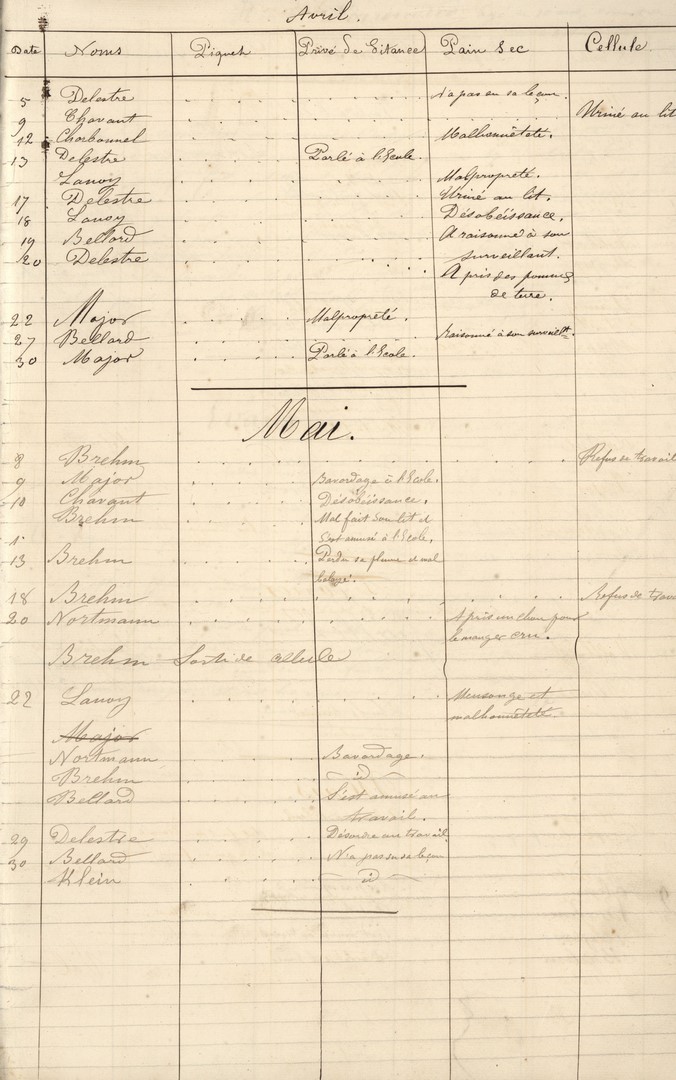 Avril.
Date Noms Piquet Privé de Pitance Pain Sec Cellule
5 Delestre N'a pas eu sa leçon.
9 Chavant Uriné au lit
12 Charbonnel Malhonnêteté.
13 Delestre Parlé à l'Ecole.
Lanoy Malpropreté.
17 Delestre Uriné au lit.
18 Lanoy Désobéissance.
19 Bellard A raisonné à son
surveillant.
20 Delestre A pris des pommes
de terre.
22 Major Malpropreté.
27 Bellard raisonné à son surveillt.
30 Major Parlé à l'Ecole.
Mai.
8 Brehm Refus de travail
9 Major Bavardage à l'Ecole.
10 Chavant Désobéissance.
Brehm Mal fait son lit et
s'est amusé à l'Ecole.
13 Brehm Perdu sa plume et mal
balayé.
18 Brehm Refus de trava
20 Nortmann A pris un chou pour
le manger cru.
Brehm Sorti de cellule
22 Lanoy Mensonge et
malhonnêteté
Major
Nortmann Bavardage.
Brehm id
Bellard S'est amusé au
travail.
29 Delestre Désordre au travail.
30 Bellard N'a pas su sa leçon
Klein id